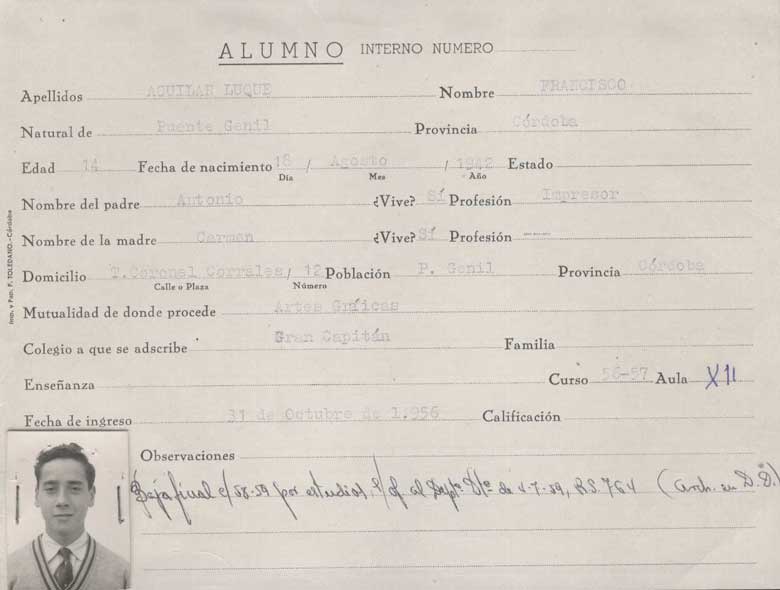 ALUMNO INTERNO NUMERO
Apellidos AGUILAR LUQUE Nombre FRANCISCO
Natural de Puente Genil Provincia Córdoba
Edad 14 Fecha de nacimiento 18 / Agosto / 1942 Estado
Día Mes Año
Nombre del padre Antonio ¿Vive? Sí Profesión Impresor
Nombre de la madre Carmen ¿Vive? Sí Profesión ---
Domicilio T.Coronel Corrales / 12 Población P. Genil Provincia Córdoba
Calle o Plaza Número
Mutualidad de donde procede Artes Gráficas
Colegio a que se adscribe Gran Capitán Familia
Enseñanza Curso 56-57 Aula XII
Fecha de ingreso 31 de Octubre de 1.956 Calificación
Observaciones
Baja final c/58-59 por estudios, s/ of. al Dept. de 4-7-59, R.S. 764 (Arch. en D.D.)
Imp. y Pap. F. TOLEDANO.-Córdoba